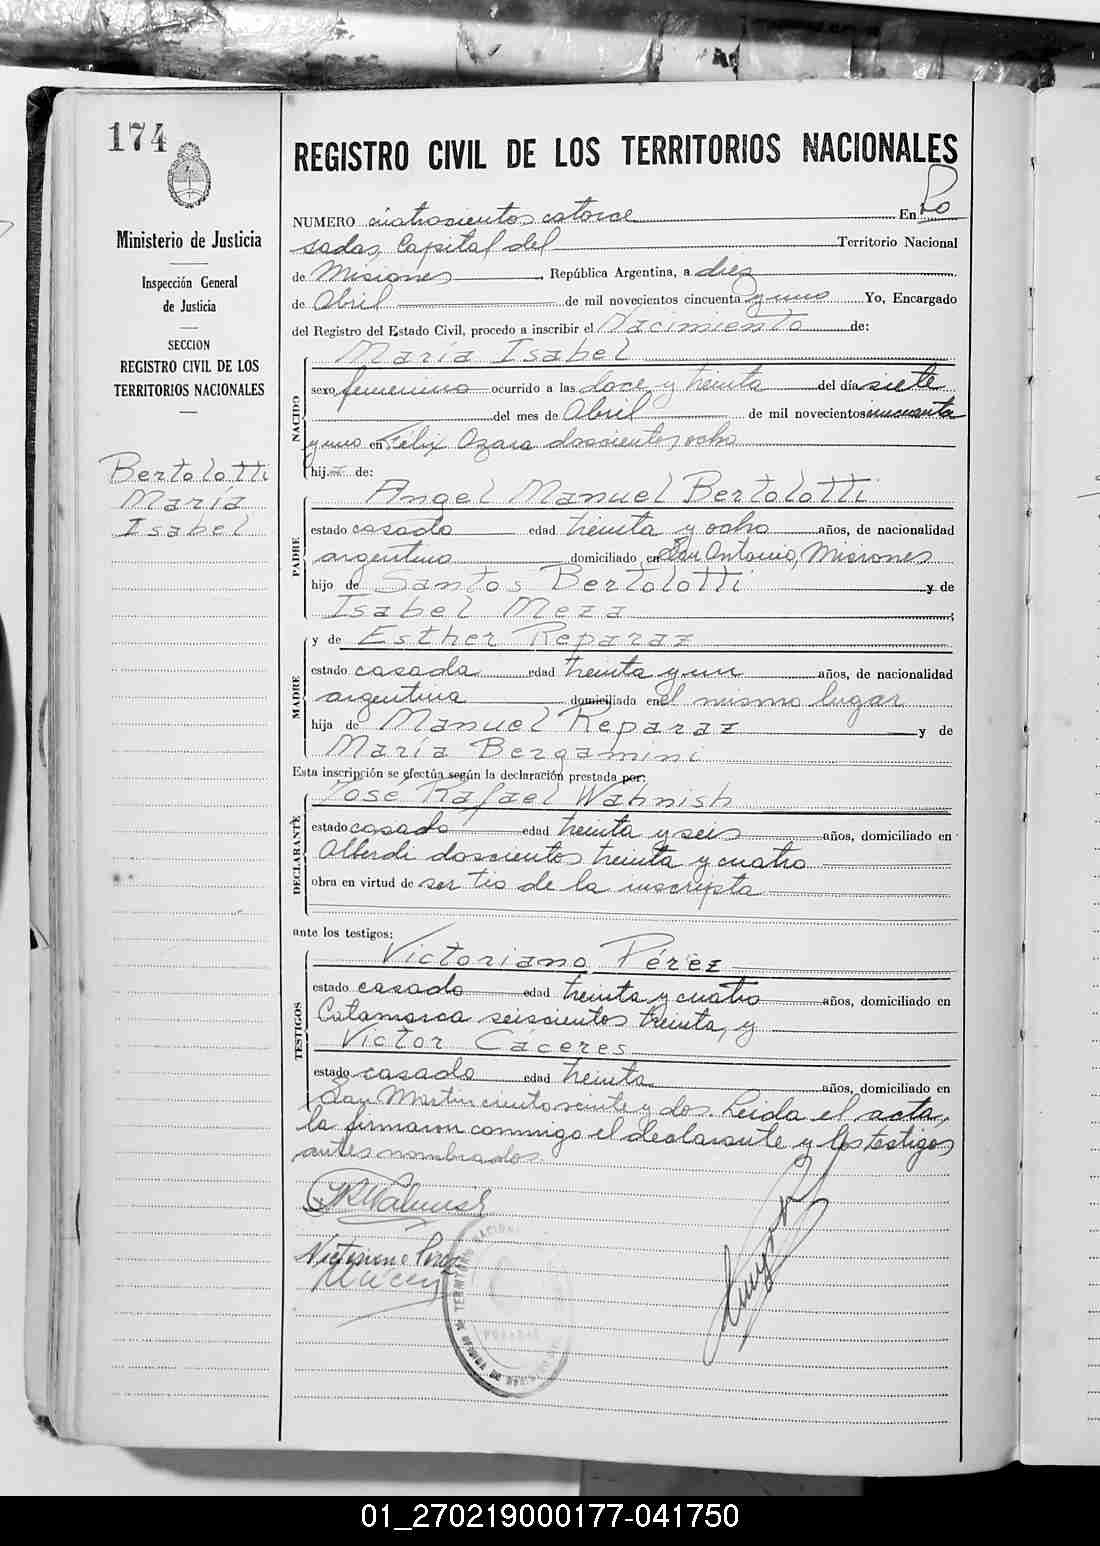 174
Ministerio de Justicia
Inspección General
de Justicia
SECCION
REGISTRO CIVIL DE LOS
TERRITORIOS NACIONALES
Bertolotti
María
Isabel
REGISTRO CIVIL DE LOS TERRITORIOS NACIONALES
NUMERO cuatrocientos catorce En Po
sadas, Capital del Territorio Nacional
de Misiones, República Argentina, a diez
de Abril de mil novecientos cincuenta y uno Yo, Encargado
del Registro del Estado Civil, procedo a inscribir el Nacimiento de:
NACIDO
María Isabel
sexo femenino ocurrido a las doce y treinta del día siete
del mes de Abril de mil novecientos cincuenta
y uno en Félix Azara doscientos ocho
hija de:
PADRE
Angel Manuel Bertolotti
estado casado edad treinta y ocho años, de nacionalidad
argentino domiciliado en San Antonio, Misiones
hijo de Santos Bertolotti y de
Isabel Meza;
MADRE
y de Esther Reparaz
estado casada edad treinta y un años, de nacionalidad
argentina domiciliada en el mismo lugar
hija de Manuel Reparaz y de
María Bergamini
Esta inscripción se efectúa según la declaración prestada por:
DECLARANTE
José Rafael Wahnish
estado casado edad treinta y seis años, domiciliado en
Alberdi doscientos treinta y cuatro
obra en virtud de ser tio de la inscripta
ante los testigos:
TESTIGOS
Victoriano Pérez
estado casado edad treinta y cuatro años, domiciliado en
Catamarca seiscientos treinta, y
Victor Cáceres
estado casado edad treinta años, domiciliado en
San Martin ciento veinte y dos. Leida el acta,
la firmaron conmigo el declarante y los testigos
antes nombrados.
Victoriano Perez
POSADAS
01_270219000177-041750